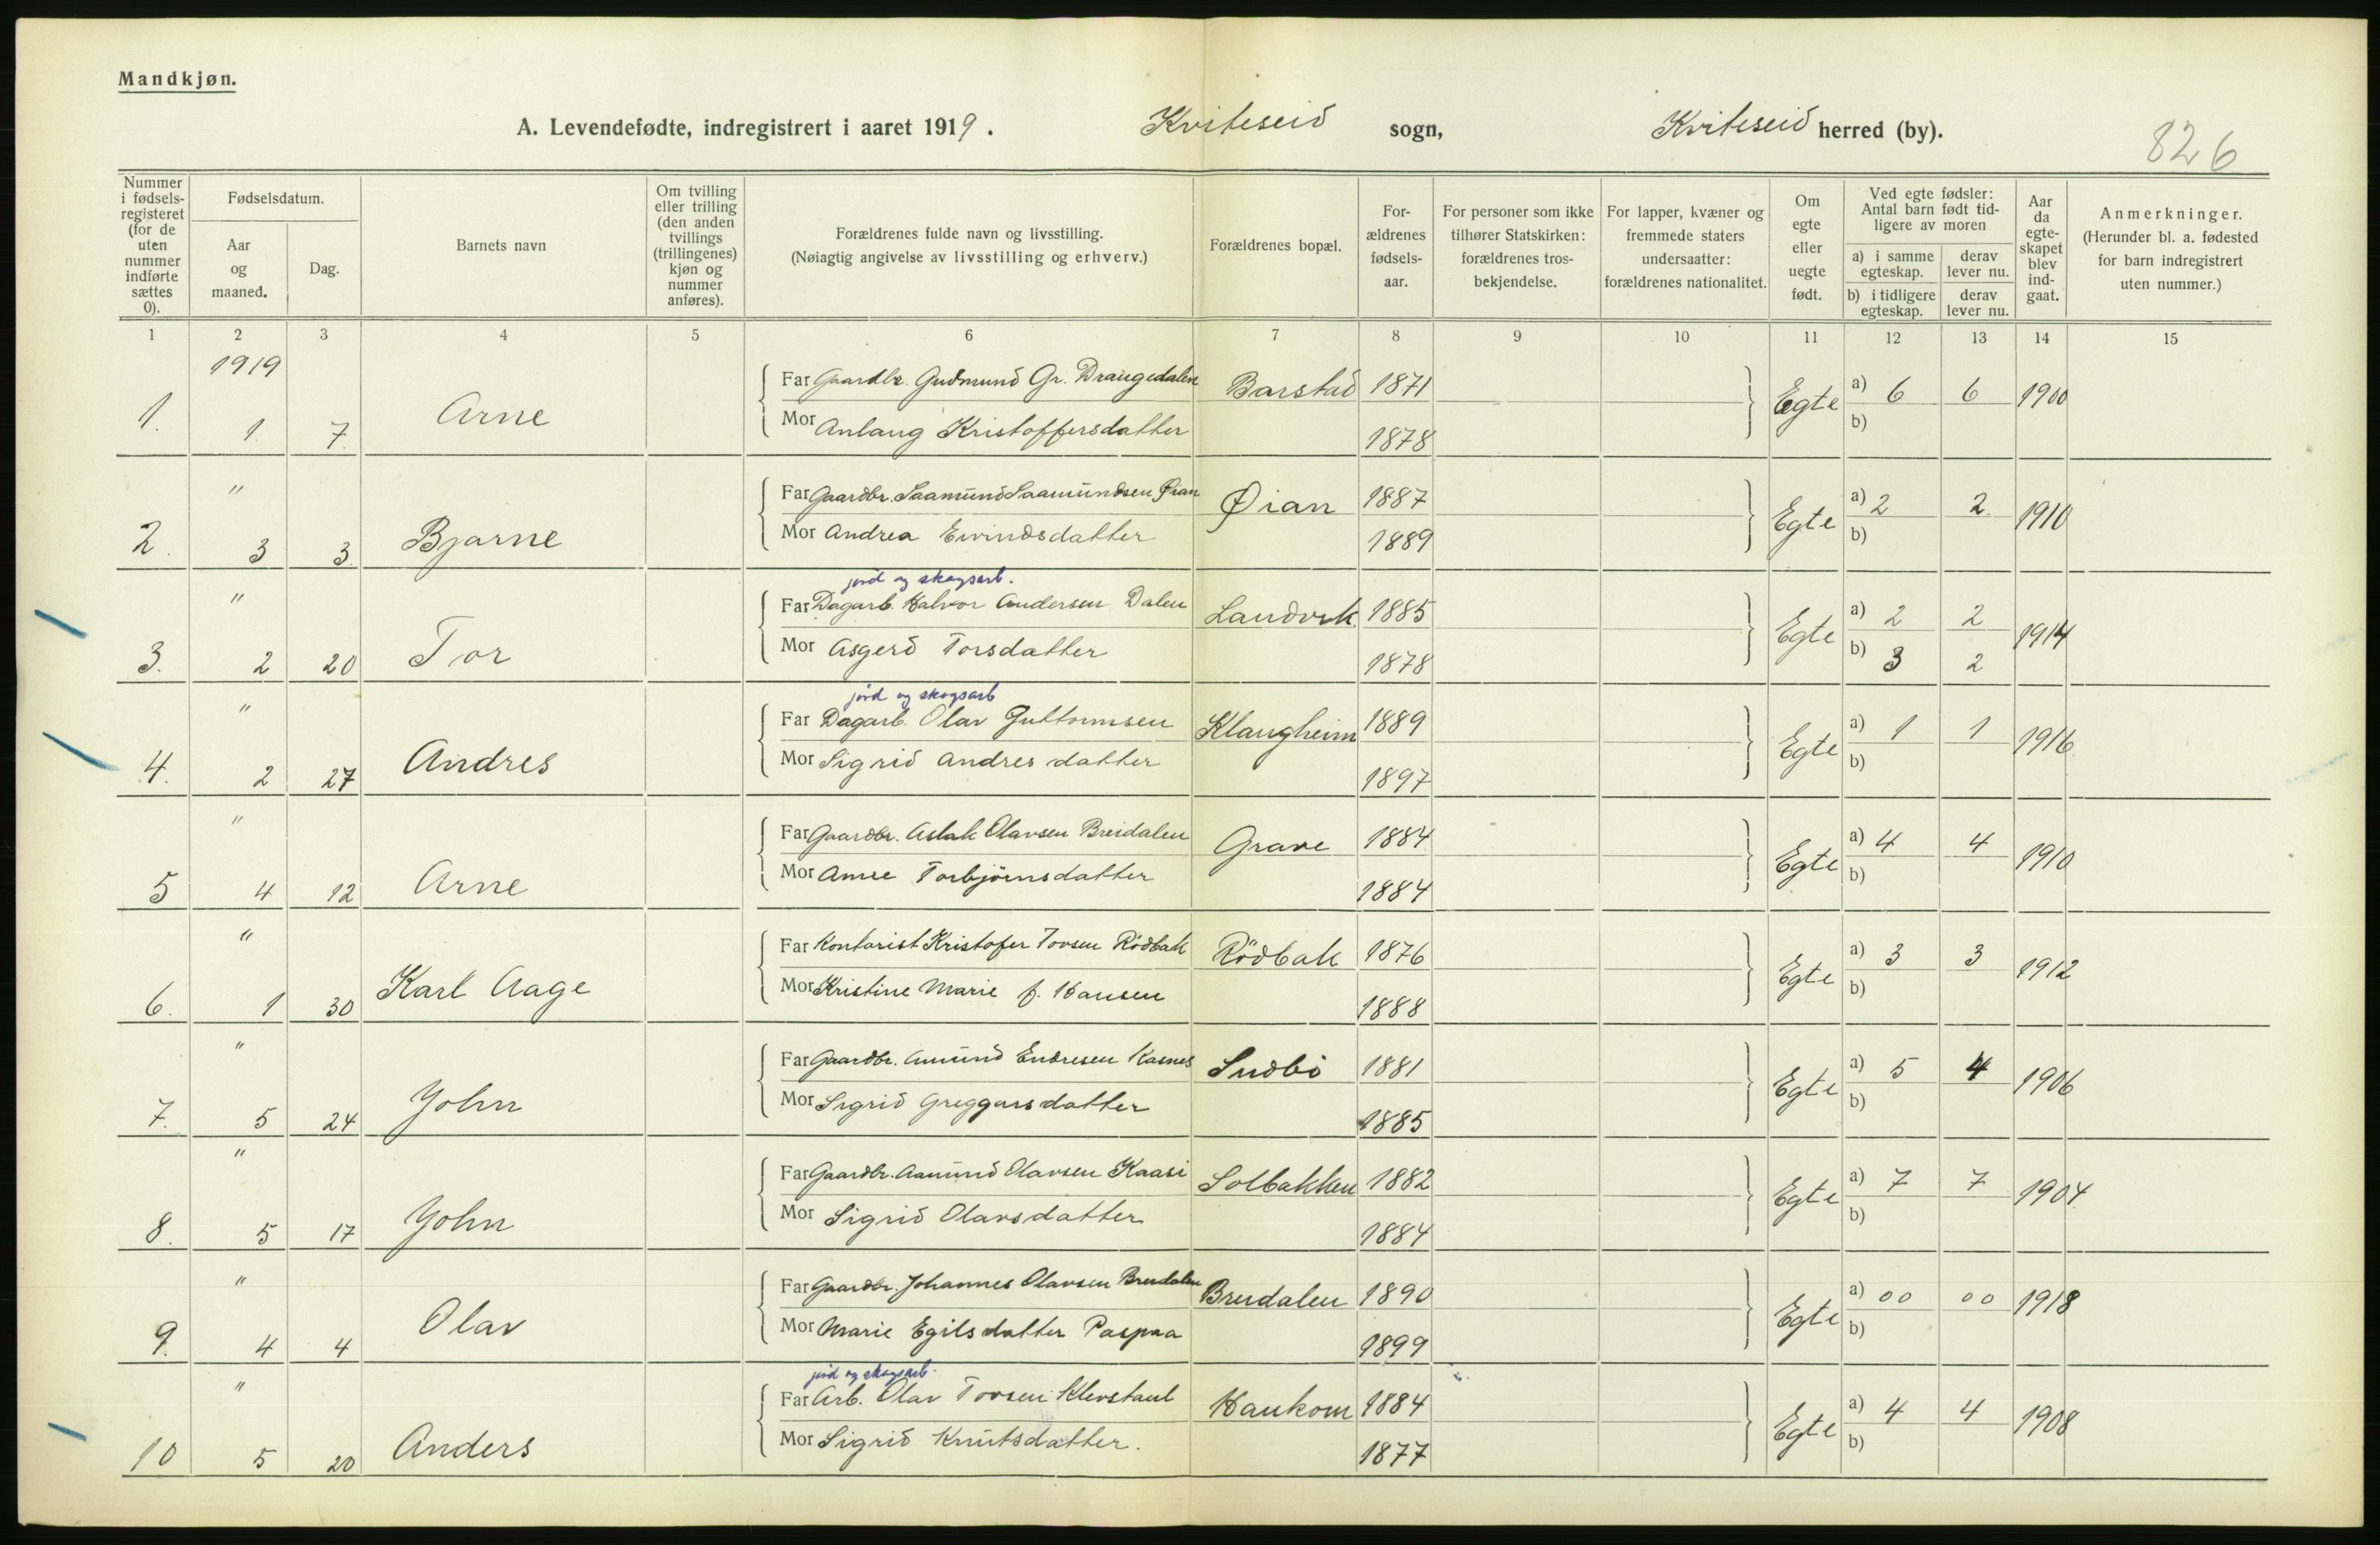 Mandkjøn.
A. Levendefødte, indregistrert i aaret 1919. Kviteseid sogn, Kviteseid herred (by).
826
Nummer i fødsels-registeret (for de uten nummer indførte sættes 0).
Fødselsdatum.
Aar og maaned.
Dag.
Barnets navn
Om tvilling eller trilling (den anden tvillings (trillingenes) kjøn og nummer anføres).
Forældrenes fulde navn og livsstilling.
(Nøiagtig angivelse av livsstilling og erhverv.)
Forældrenes bopæl.
For-ældrenes fødsels-aar.
For personer som ikke tilhører Statskirken: forældrenes tros-bekjendelse.
For lapper, kvæner og fremmede staters undersaatter: forældrenes nationalitet.
Om egte eller uegte født.
Ved egte fødsler: Antal barn født tid-ligere av moren
a) i samme egteskap. derav lever nu.
b) i tidligere egteskap. derav lever nu.
Aar da egte-skapet blev ind-gaat.
Anmerkninger.
(Herunder bl. a. fødested for barn indregistrert uten nummer.)
1 2 3 4 5 6 7 8 9 10 11 12 13 14 15
1919
1. 1. 7. Arne
Far Gaardbr. Gudmund Gr. Draugedalen Barstad 1871 Egte a) 6 6 1900
Mor Anlaug Kristoffersdatter 1878 b)
"
2. 3 3. Bjarne
Far Gaardbr. Saamund Saamundsen Øian Øian 1887 Egte a) 2 2. 1910
Mor Andrea Eivindsdatter 1889 b)
jord og skogsarb.
"
3. 2 20 Tor
Far Dagarb. Halvor Andersen Dalen Landvik 1885 Egte a) 2 2 1914
Mor Asgerd Torsdatter 1878 b) 3 2
jord og skogsarb
"
4. 2 27 Andres
Far Dagarb. Olav Guttormsen Klaugheim 1889 Egte a) 1 1 1916.
Mor Sigrid Andresdatter 1897 b)
"
5 4 12 Arne
Far Gaardbr. Aslak Olavsen Breidalen Grave 1884 Egte a) 4 4 1910
Mor Anne Torbjörnsdatter 1884 b)
"
6. 1 30 Karl Aage
Far Kontorist Kristofer Tovsen Rödbak Rödbak 1876 Egte a) 3 3 1912
Mor Kristine Marie f. Hansen 1888 b)
"
7. 5 24 John
Far Gaardbr. Amund Endresen Kasnes Sudbö 1881 Egte a) 5 4 1906
Mor Sigrid Greggarsdatter 1885 b)
"
8. 5 17 John
Far Gaardbr. Aamund Olavsen Kaasi Solbakken 1882 Egte a) 7 7 1904.
Mor Sigrid Olavsdatter 1884 b)
"
9. 4 4 Olav
Far Gaardbr. Johannes Olavsen Breidalen Breidalen 1890 Egte a) 00 00 1918
Mor Marie Egilsdatter Paspaa 1899 b)
jord og skogsarb.
"
10 5 20 Anders
Far Arb. Olav Tovsen Klevstaul Haukom 1884 Egte a) 4 4 1908
Mor Sigrid Knutsdatter. 1877 b)